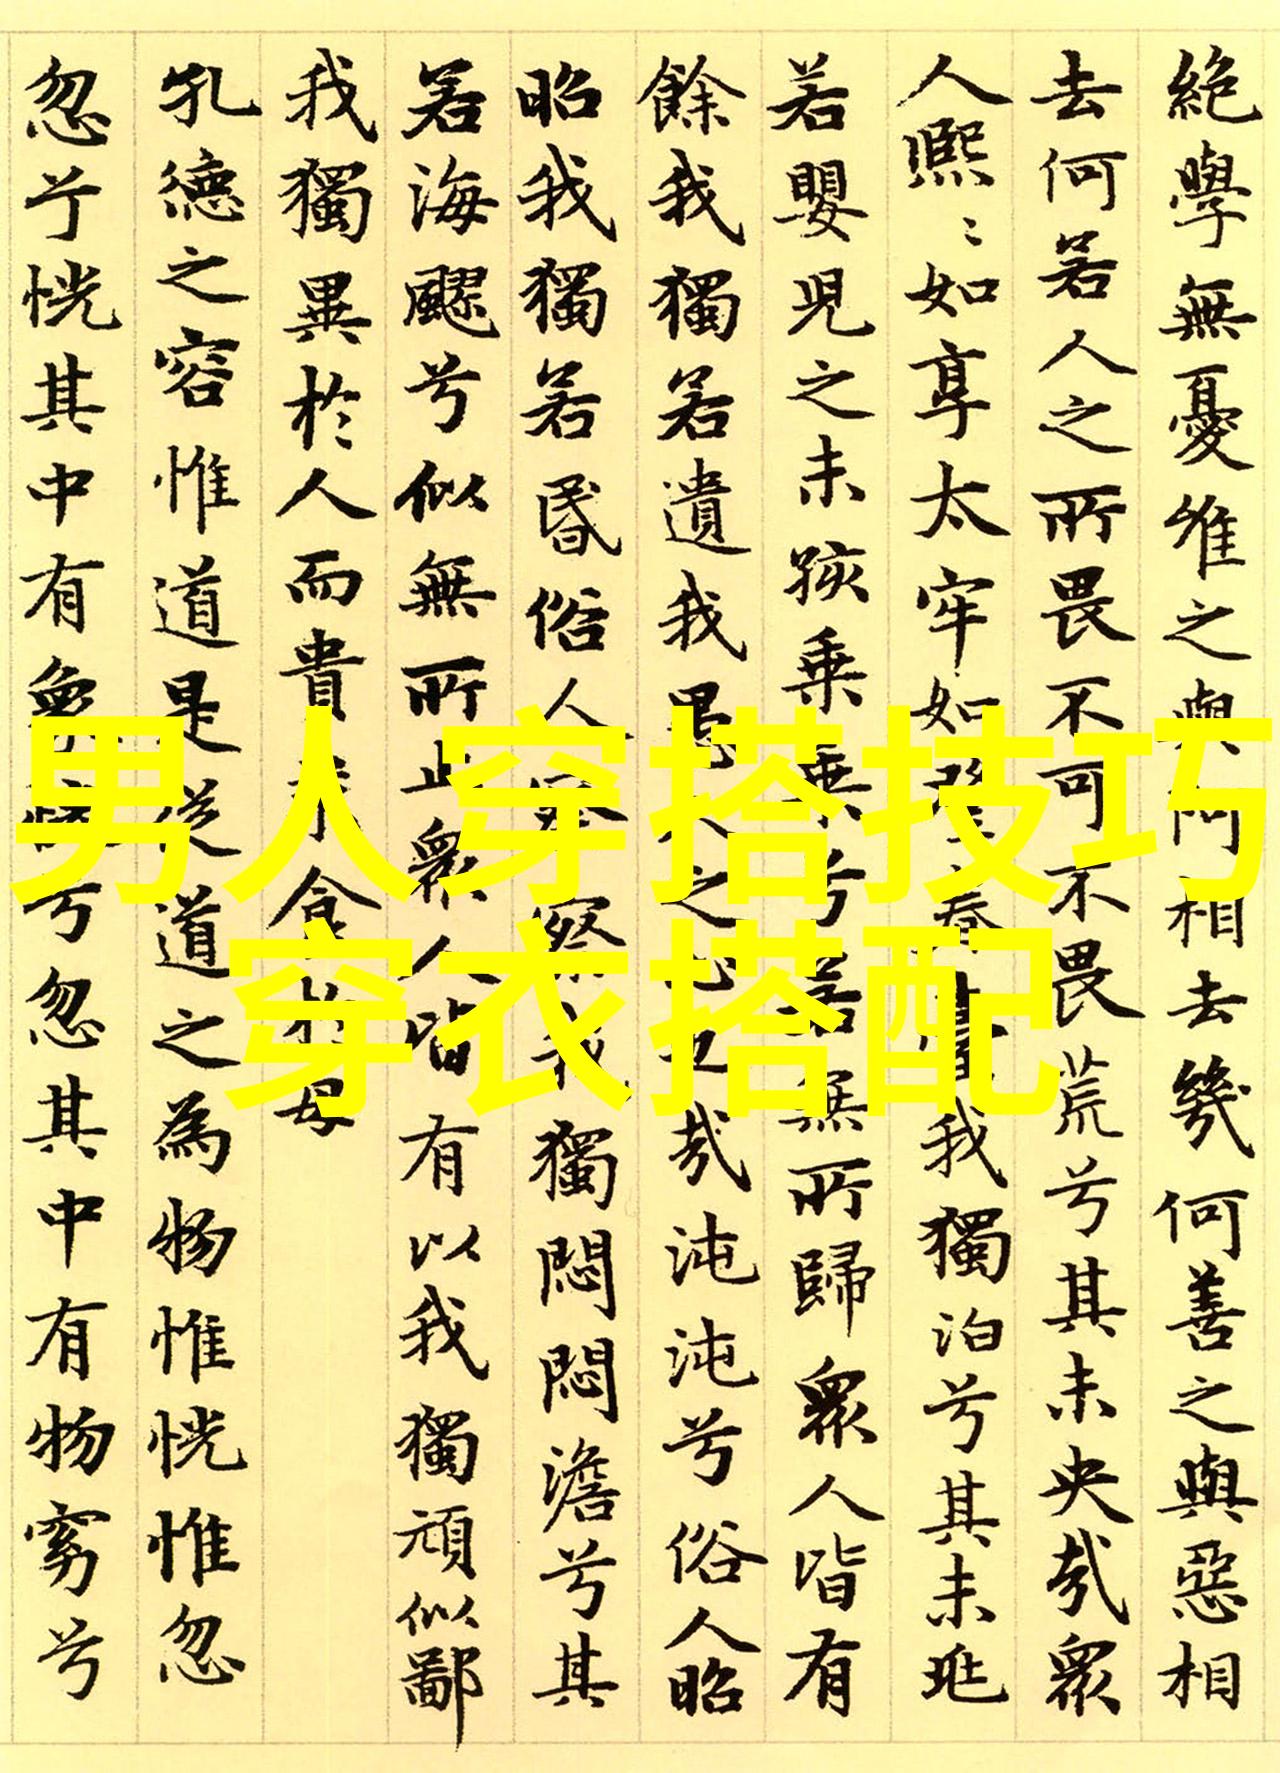 絶學無憂唯之與阿相去幾何善之與惡相
去何若人之所畏不可不畏荒兮其未央哉衆
人熙〻如享太牢如登春臺我獨泊兮其未兆
若嬰兒之未孩乗乗兮若無所歸衆人皆有
餘我獨若遺我愚人之心也哉沌沌兮俗人昭
昭我獨若昏俗人察察我獨悶悶澹兮其
若海飂兮似無所止衆人皆有以我獨頑似鄙
我獨異於人而貴求食於母
孔德之容惟道是從道之為物惟恍惟忽
忽兮恍其中有象恍兮忽其中有物窈兮
男人穿搭技巧
穿衣搭配